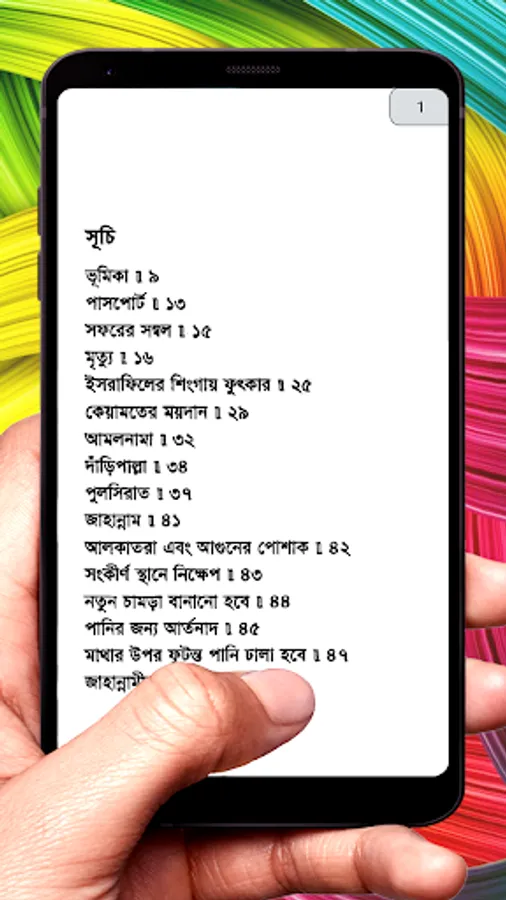 1
সূচি
ভূমিকা ৷ ৯
পাসপোর্ট ৷ ১৩
সফরের সম্বল ৷ ১৫
মৃত্যু ৷ ১৬
ইসরাফিলের শিংগায় ফুৎকার ৷ ২৫
কেয়ামতের ময়দান ৷ ২৯
আমলনামা ৷ ৩২
দাঁড়িপাল্লা ৷ ৩৪
পুলসিরাত ৷ ৩৭
জাহান্নাম ৷ ৪১
আলকাতরা এবং আগুনের পোশাক ৷ ৪২
সংকীর্ণ স্থানে নিক্ষেপ ৷ ৪৩
নতুন চামড়া বানানো হবে ৷ ৪৪
পানির জন্য আর্তনাদ ৷ ৪৫
মাথার উপর ফুটন্ত পানি ঢালা হবে ৷ ৪৭